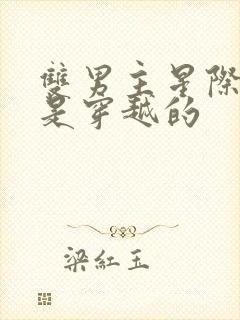 雙男主星際
是穿越的
梁紅玉